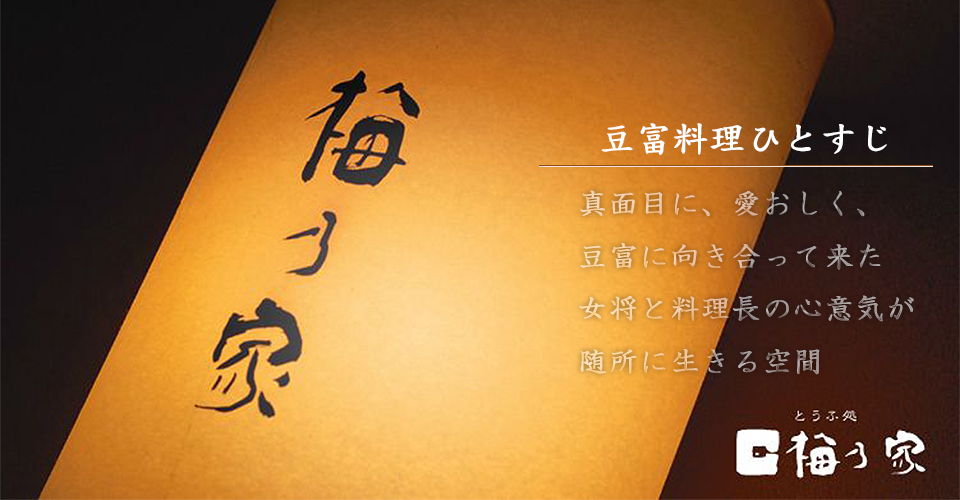 梅乃家
豆富料理ひとすじ
真面目に、愛おしく、
豆富に向き合って来た
女将と料理長の心意気が
随所に生きる空間
とうふ処
梅乃家